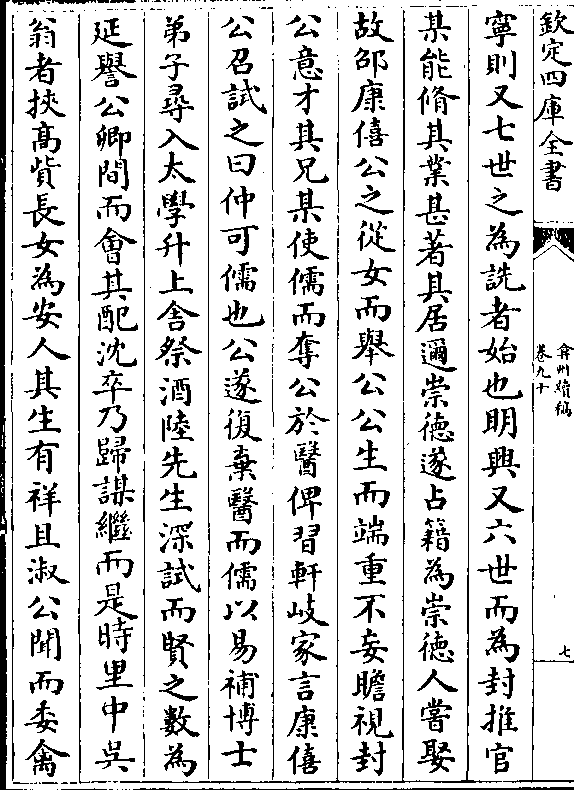 欽定四庫全書
弇州續稿
卷九十
七
寧則又七世之為詵者始也明興又六世而為封推官
某能脩其業甚著其居邇崇德遂占籍為崇德人嘗娶
故邵康僖公之從女而舉公公生而端重不妄瞻視封
公意才其兄某使儒而奪公於醫俾習軒岐家言康僖
公召試之曰仲可儒也公遂復棄醫而儒以易補博士
弟子尋入太學升上舍祭酒陸先生深試而賢之數為
延譽公卿間而會其配沈卒乃歸謀繼而是時里中吳
翁者挾高貲長女為安人其生有祥且淑公聞而委禽